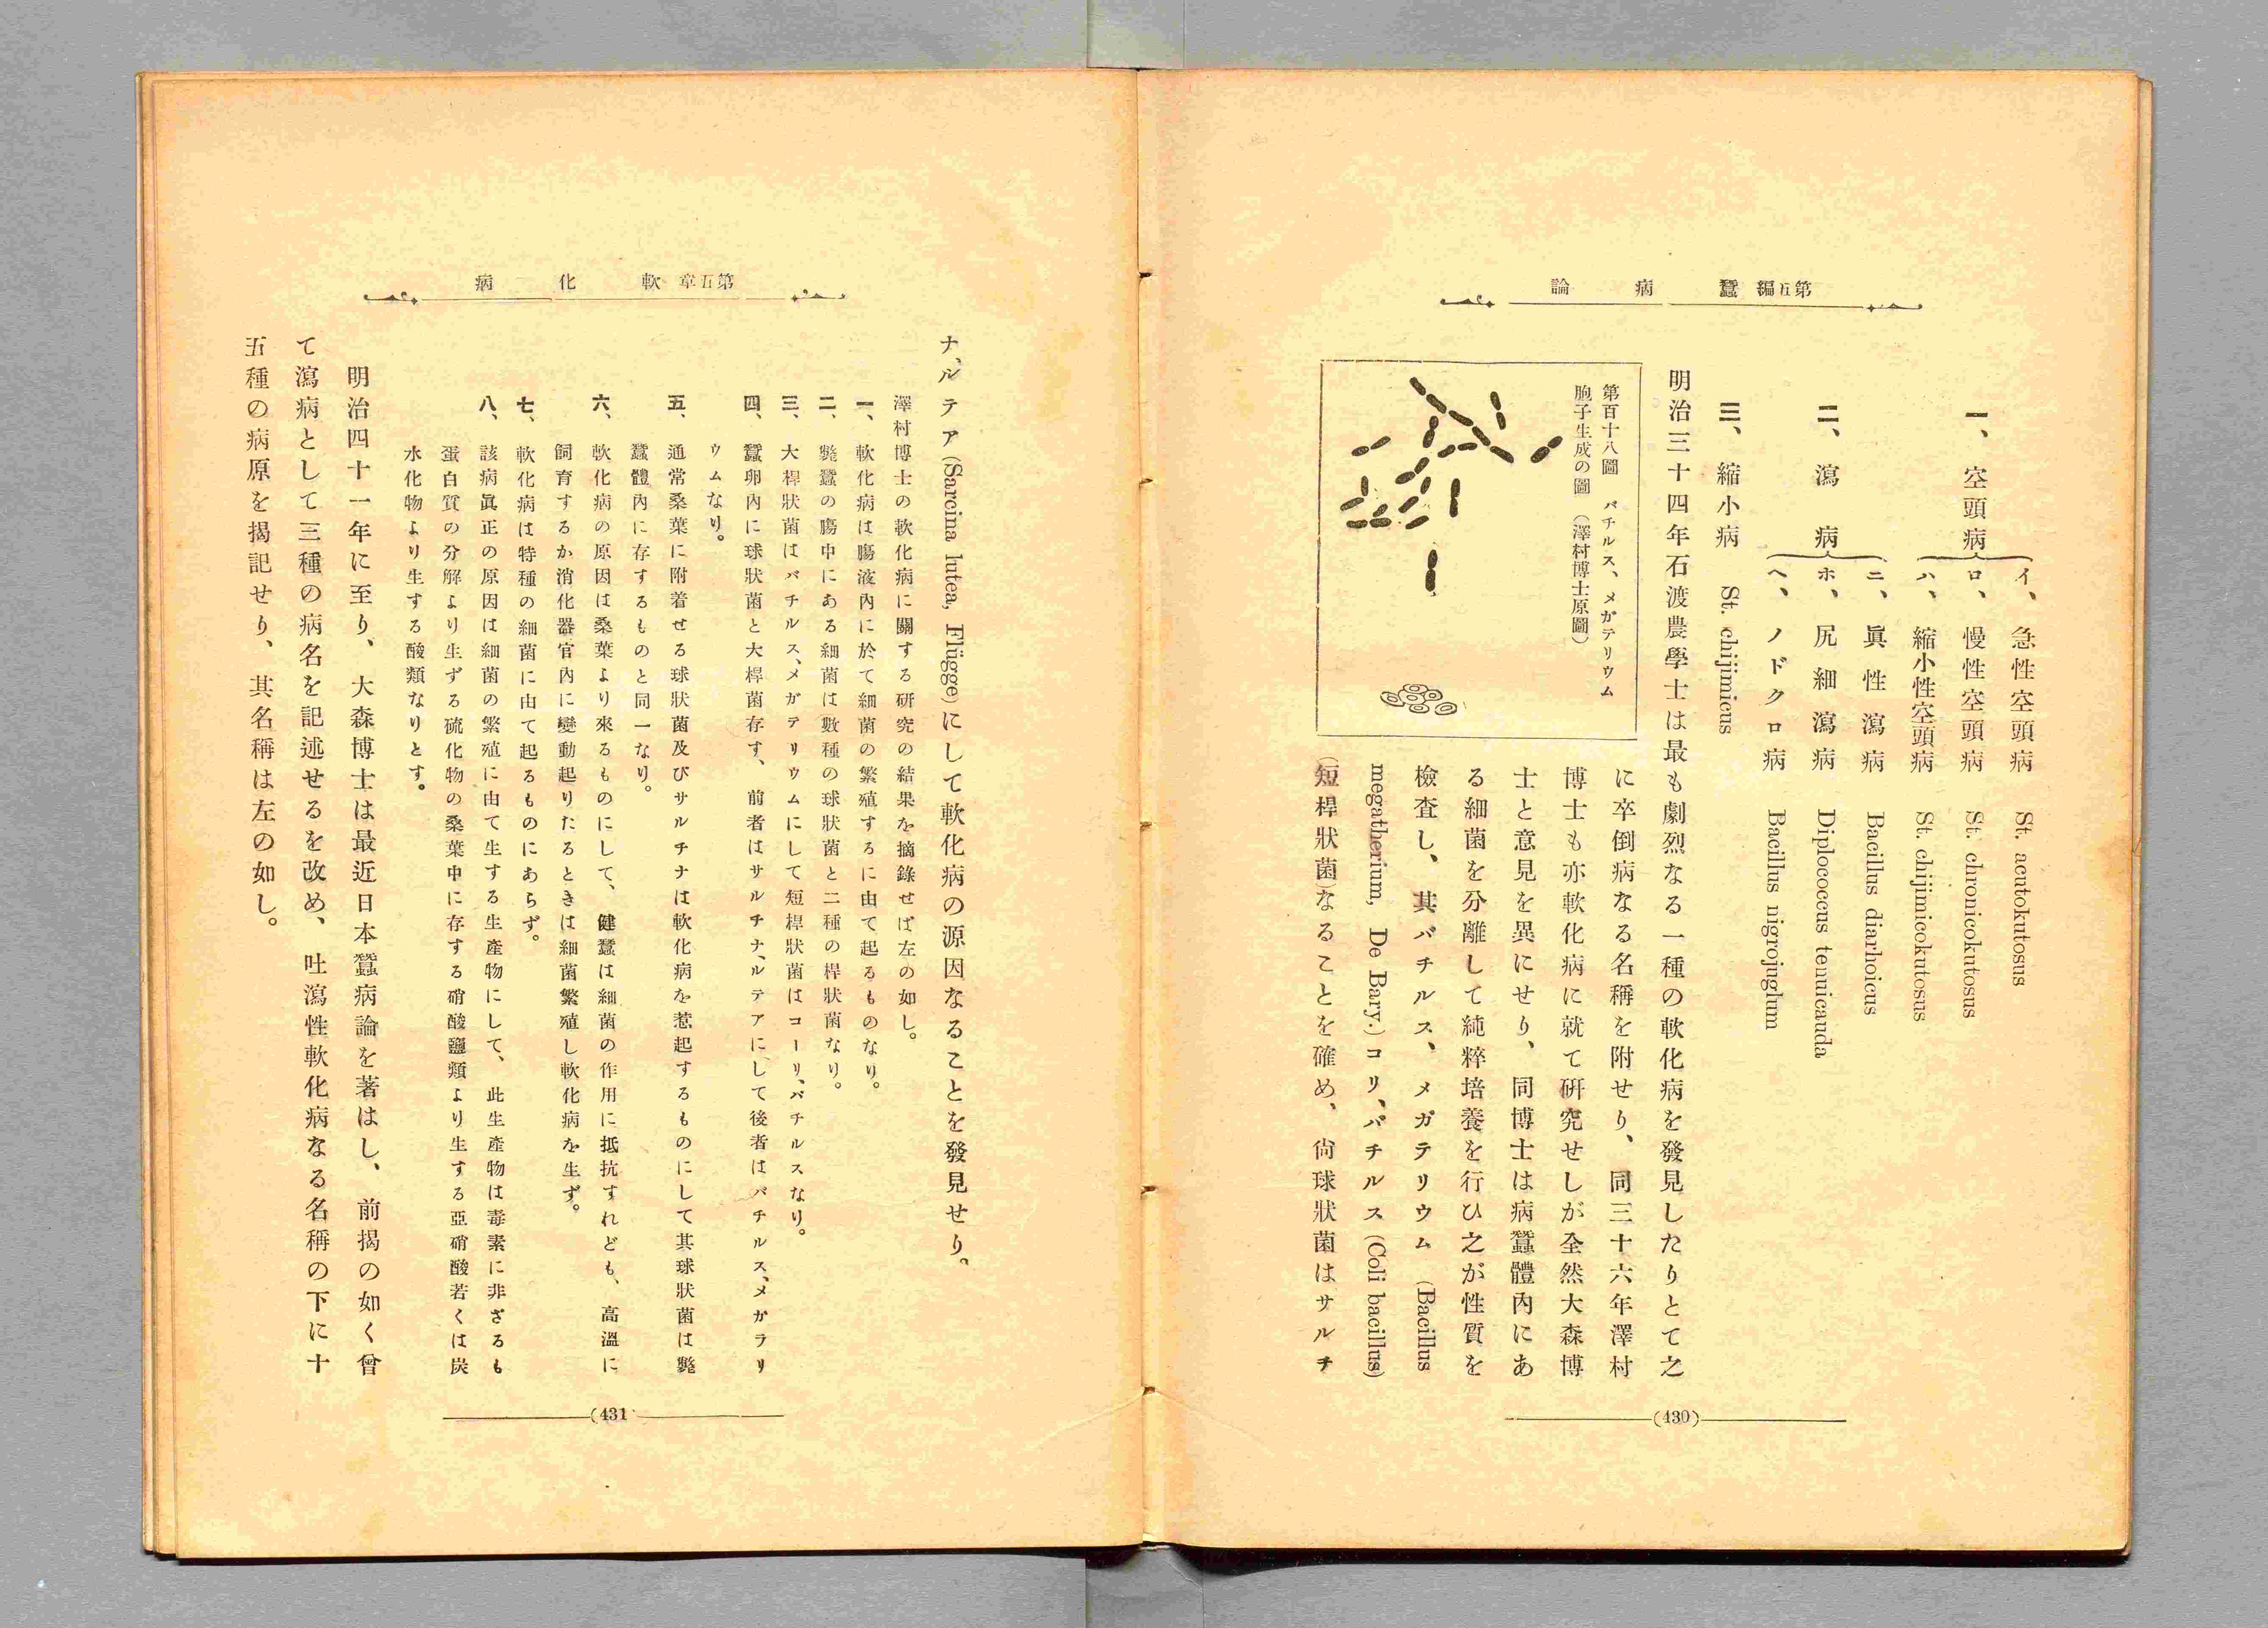 第五編 蠶病論
一、空頭病
イ、急性空頭病 St. acutokutosus
ロ、慢性空頭病 St. chronicokutosus
ハ、縮小性空頭病 St. chijimicokutosus
二、瀉病
ニ、眞性瀉病 Bacillus diarhoicus
ホ、尻細瀉病 Diplococcus tenuicauda
ヘ、ノドクロ病 Bacillus nigrojuglum
三、縮小病 St. chijimicus
明治三十四年石渡農學士は最も劇烈なる一種の軟化病を發見したりとて之
第百十八圖 バチルス、メガテリウム
胞子生成の圖(澤村博士原圖)
に卒倒病なる名稱を附せり、同三十六年澤村
博士も亦軟化病に就て硏究せしが全然大森博
士と意見を異にせり、同博士は病蠶體內にあ
る細菌を分離して純粹培養を行ひ之が性質を
檢査し、其バチルス、メガテリウム (Bacillus
megatherium, De Bary.) コリ、バチルス (Coli bacillus)
(短桿狀菌)なることを確め、尙球狀菌はサルチ
(430)
第五章 軟化病
ナ、ルテア (Sarcina lutea, Flügge) にして軟化病の源因なることを發見せり。
澤村博士の軟化病に關する硏究の結果を摘錄せば左の如し。
一、軟化病は膓液內に於て細菌の繁殖するに由て起るものなり。
二、斃蠶の膓中にある細菌は數種の球狀菌と二種の桿狀菌なり。
三、大桿狀菌はバチルス、メガテリウムにして短桿狀菌はコーリ、バチルスなり。
四、蠶卵內に球狀菌と大桿菌存す、前者はサルチナ、ルテアにして後者はバチルス、メガラリ
ウムなり。
五、通常桑葉に附着せる球狀菌及びサルチナは軟化病を惹起するものにして其球狀菌は斃
蠶體內に存するものと同一なり。
六、軟化病の原因は桑葉より來るものにして、健蠶は細菌の作用に抵抗すれども、高溫に
飼育するか消化器官內に變動起りたるときは細菌繁殖し軟化病を生ず。
七、軟化病は特種の細菌に由て起るものにあらず。
八、該病眞正の原因は細菌の繁殖に由て生する生產物にして、此生產物は毒素に非ざるも
蛋白質の分解より生ずる硫化物の桑葉中に存する硝酸鹽類より生する亞硝酸若くは炭
水化物より生する酸類なりとす。
明治四十一年に至り、大森博士は最近日本蠶病論を著はし、前揭の如く曾
て瀉病として三種の病名を記述せるを改め、吐瀉性軟化病なる名稱の下に十
五種の病原を揭記せり、其名稱は左の如し。
(431)